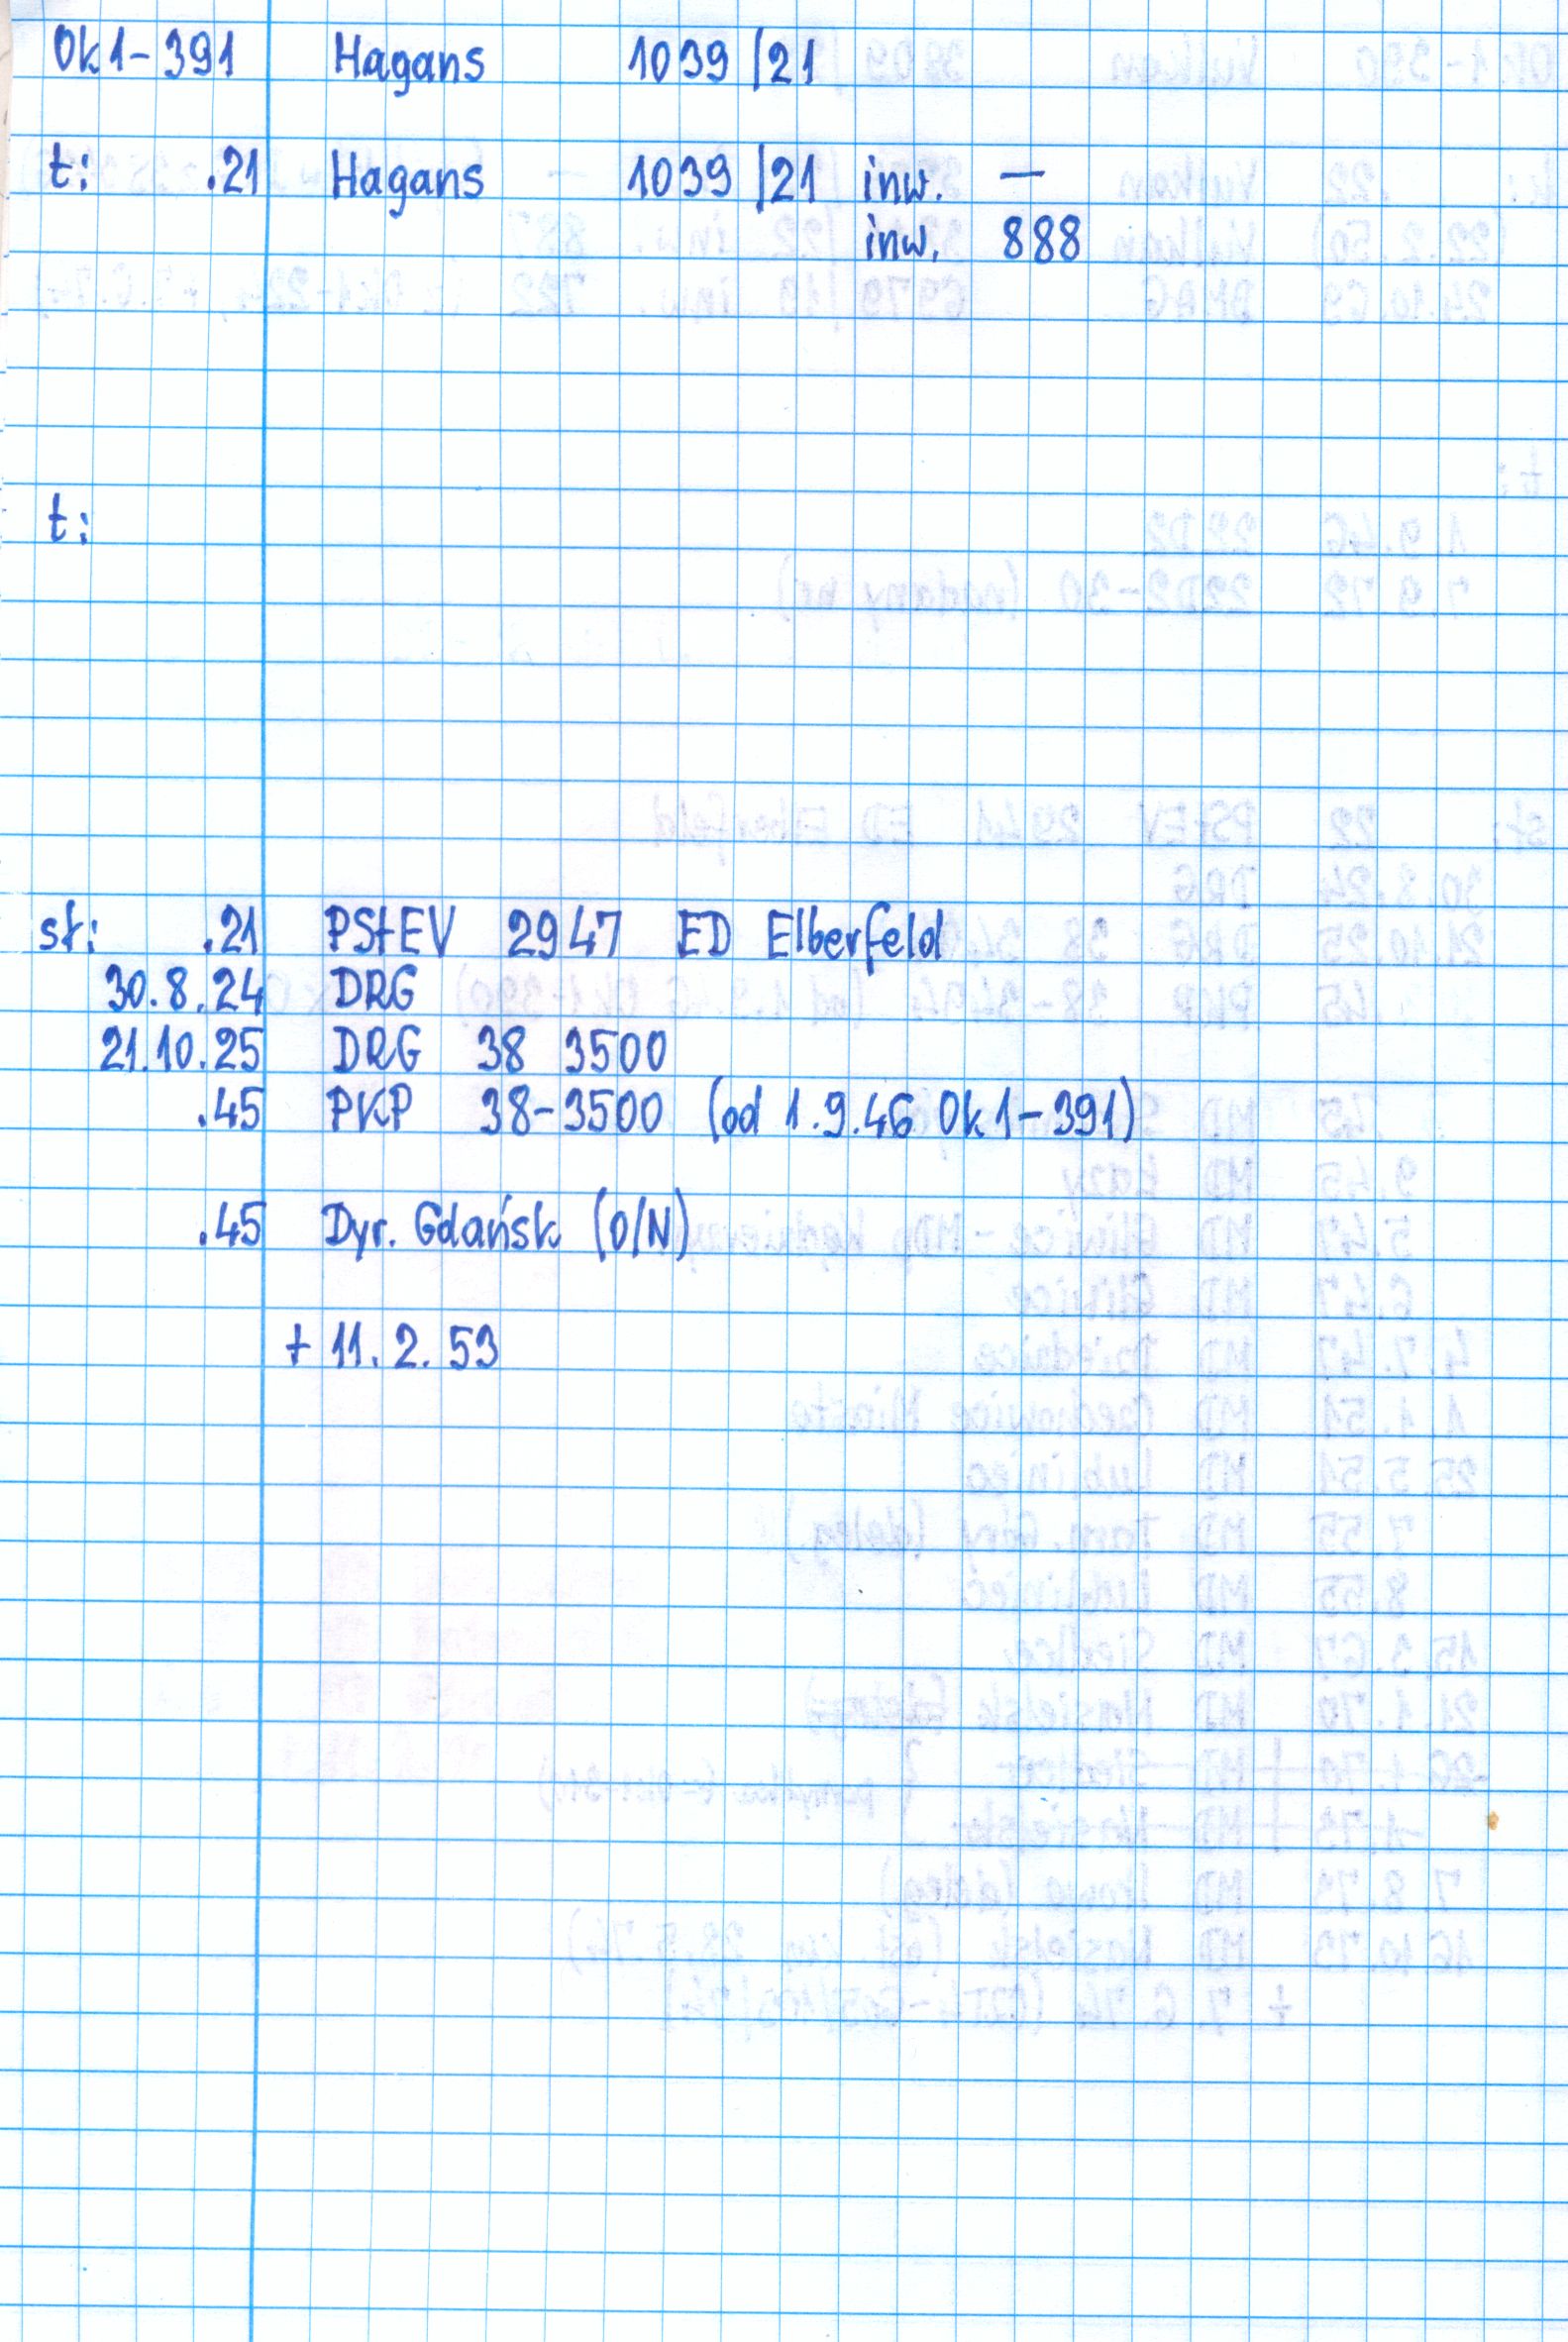 Ok1-391 Hagans 1039/21
t: .21 Hagans 1039/21 inw. —
inw. 888
t:
st: .21 PStEV 2947 ED Elberfeld
30.8.24 DRG
21.10.25 DRG 38 3500
.45 PKP 38-3500 (od 1.9.46 Ok1-391)
.45 Dyr. Gdańsk (O/N)
+ 11.2.53